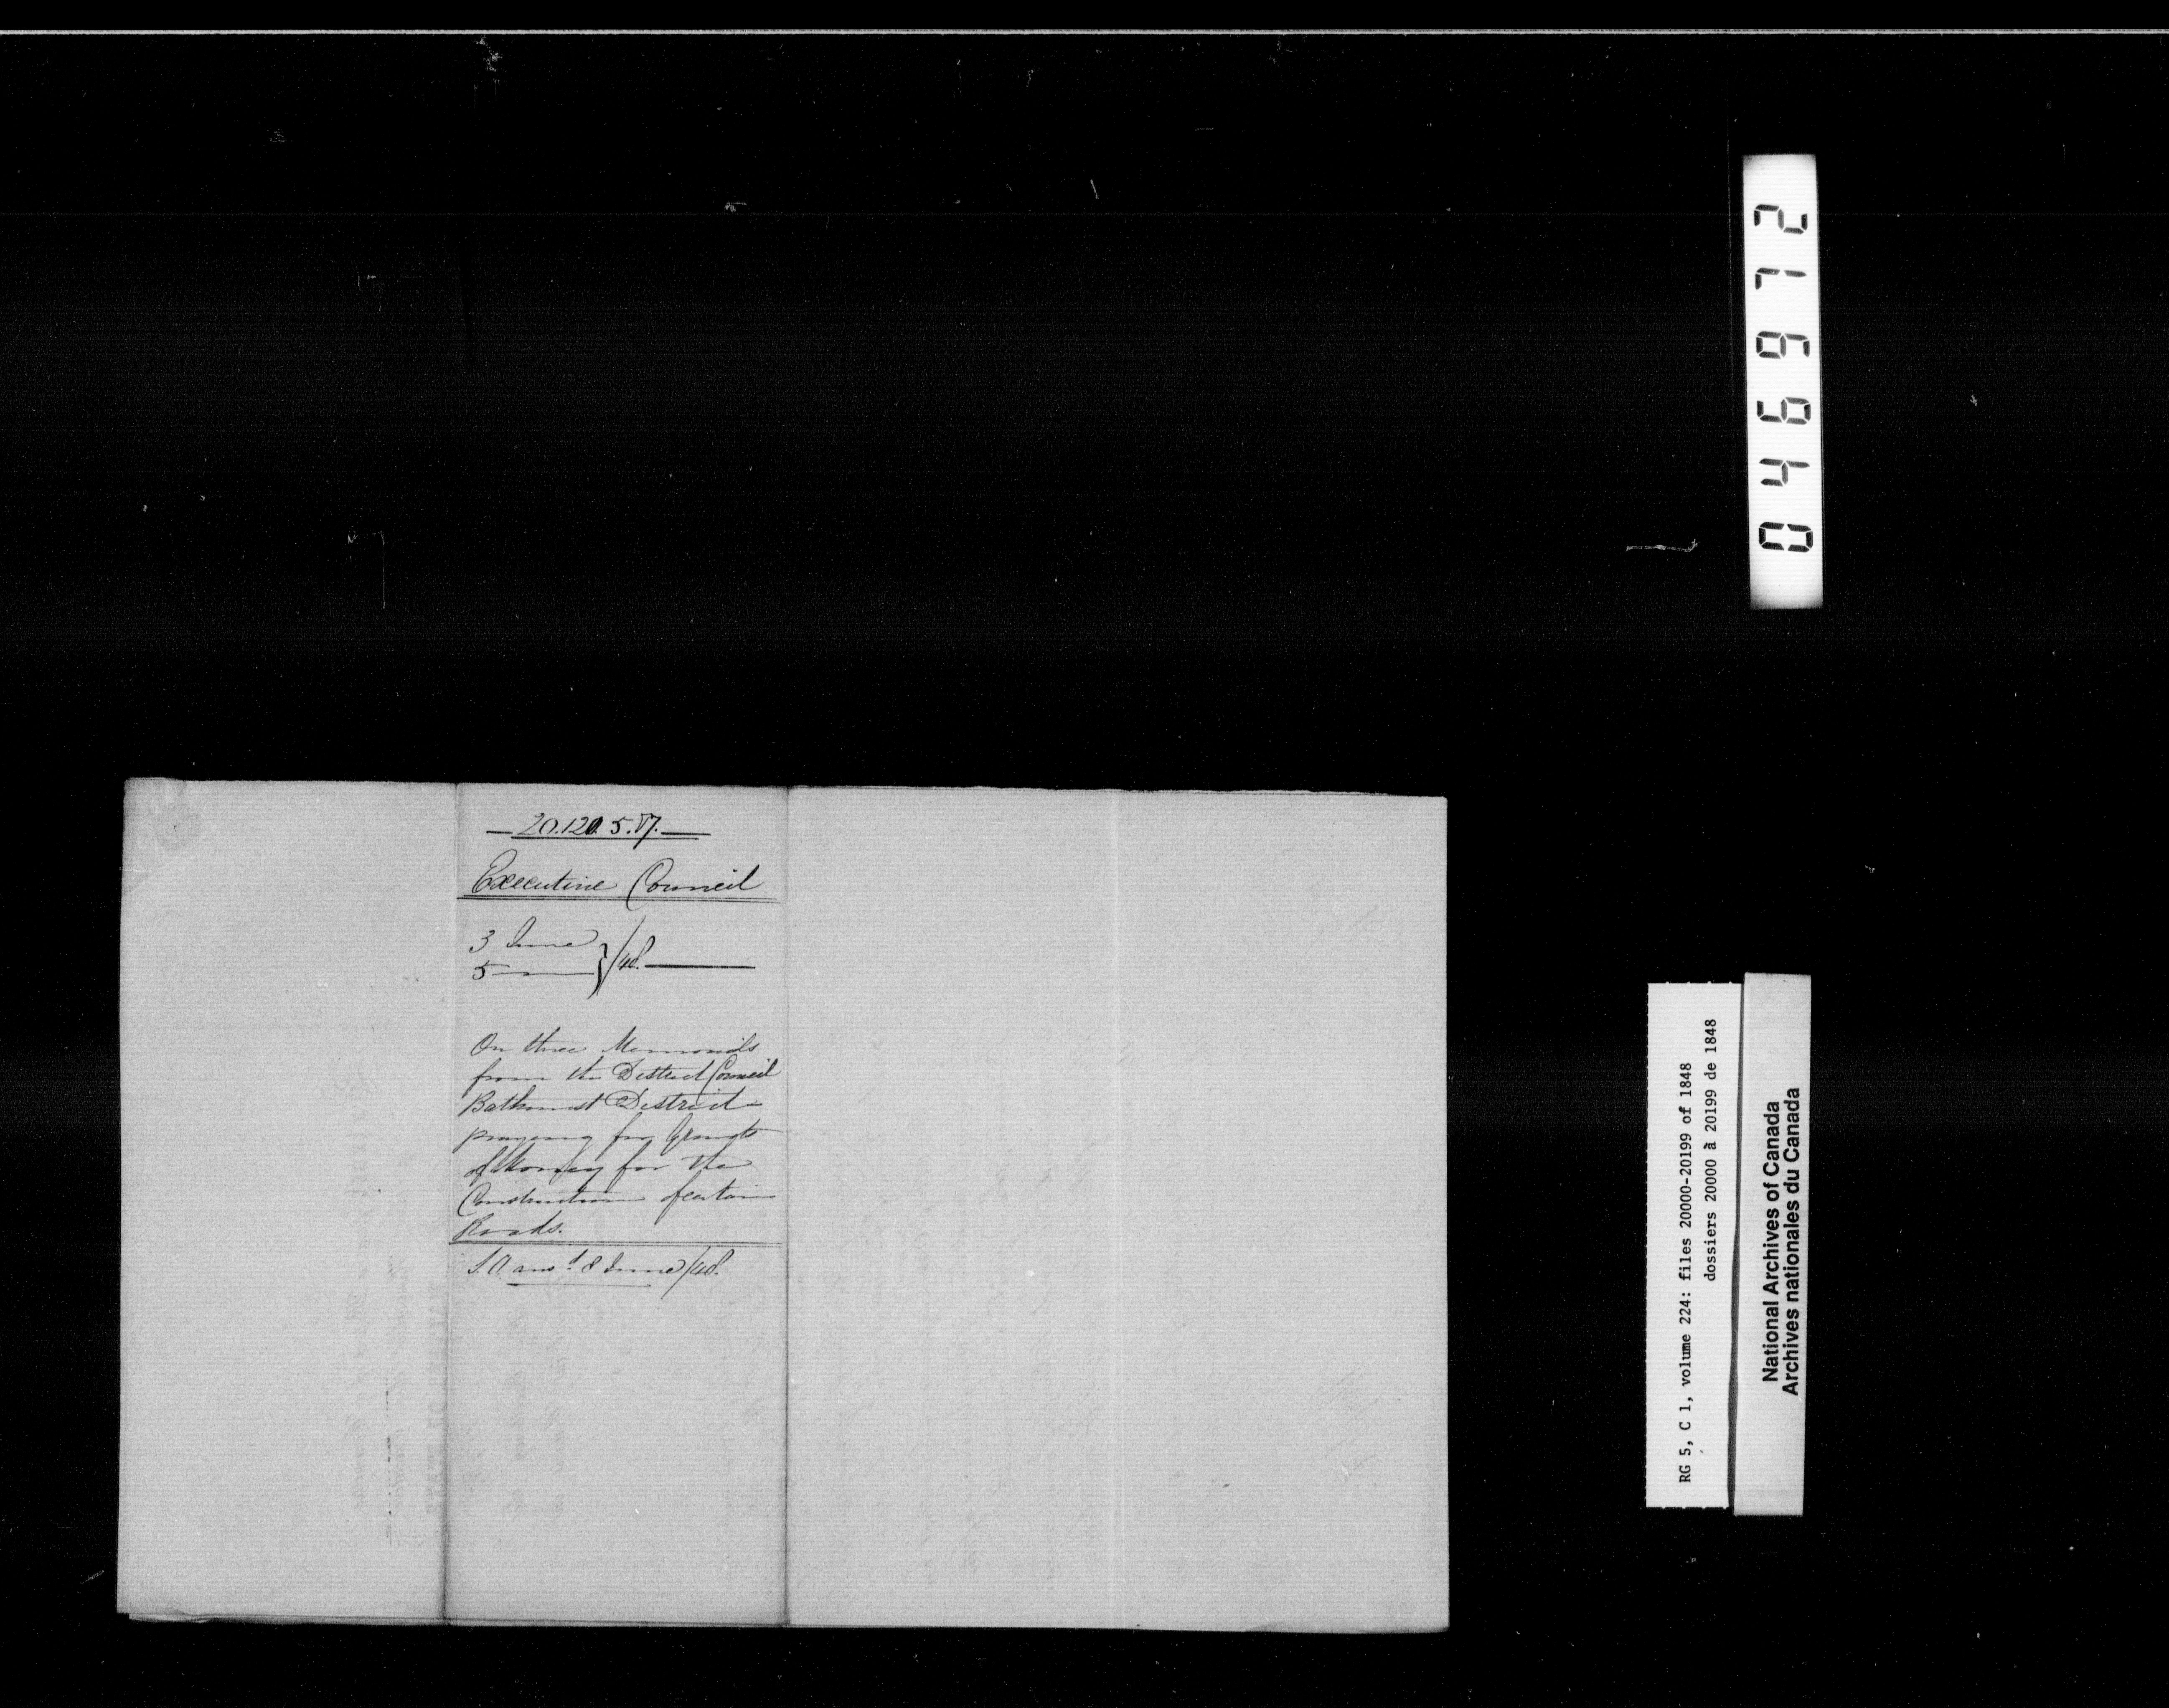 20.120. 5.
Executive Council
3 June
5 — } /48.
On three Memorials
from the District Council
Bathurst District
praying for Grants
of Money for the
Construction of certain
Roads.
ansd 8 June/48.
046972
RG 5, C 1, volume 224: files 20000-20199 of 1848
dossiers 20000 à 20199 de 1848
National Archives of Canada
Archives nationales du Canada